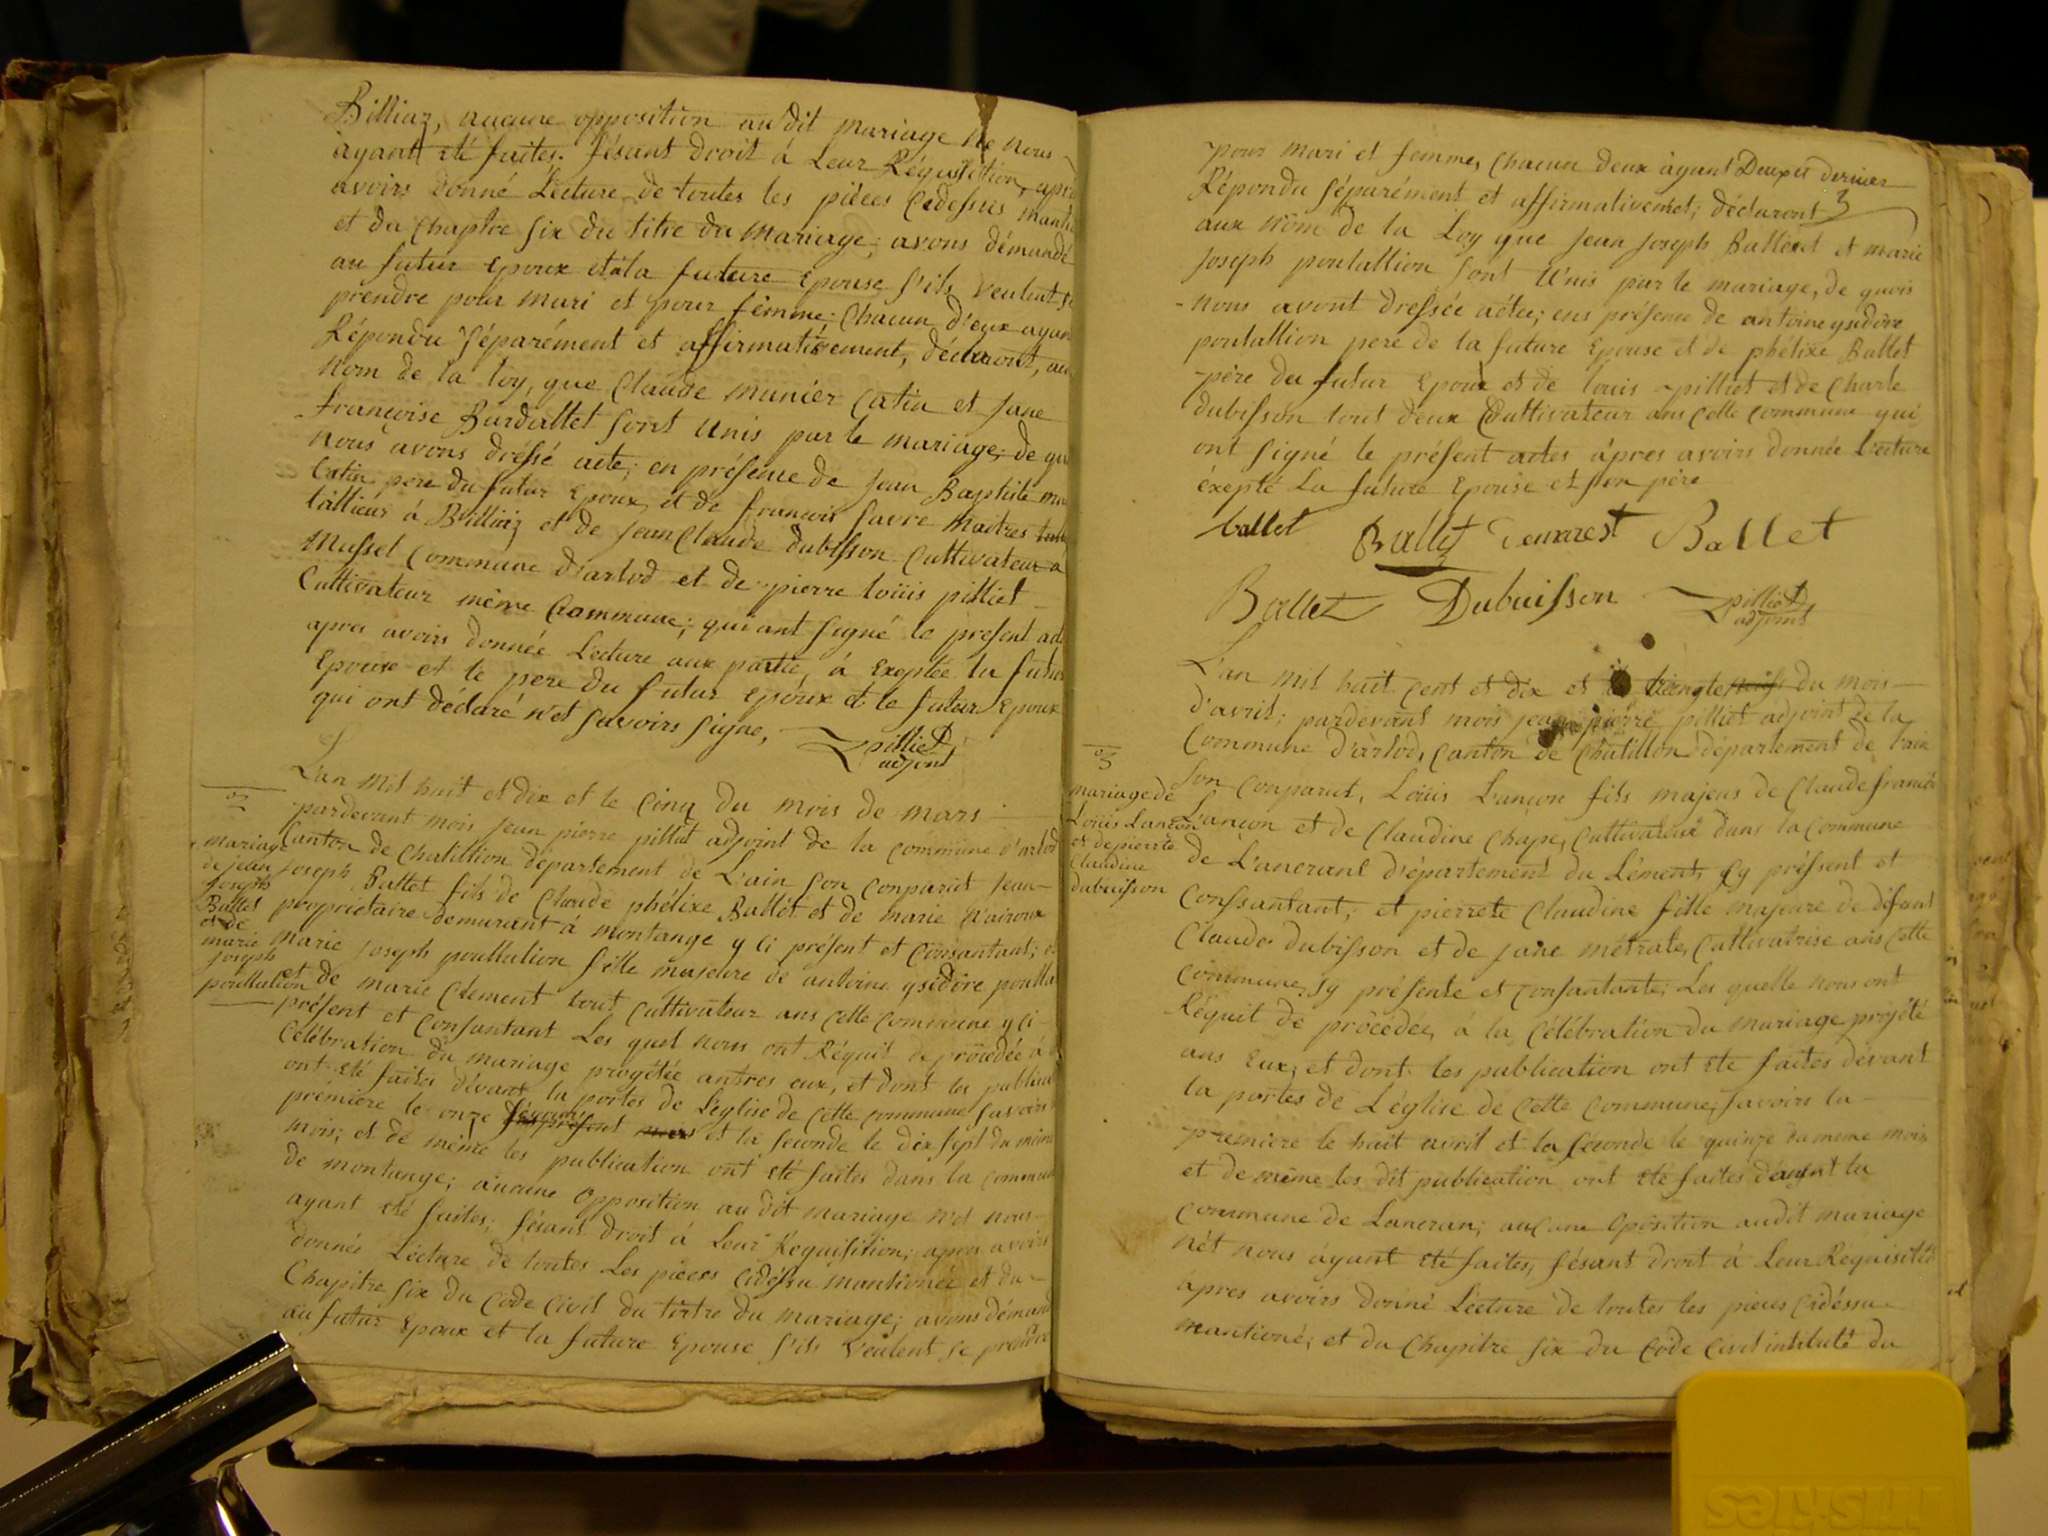 Billiaz, aucune opposition au dit mariage ne nous
ayant été faites. fésant droit á Leur Réquisition, après
avoirs donné Lecture de toutes les pièces Cidessus
et du Chaptre six du titre du mariage; avons démandé
au futur Epoux et à la future Epouse s'ils veulent se
prendre pour mari et pour femme; Chacun d'eux ayant
Répondu séparément et affirmativement, déclaront, au
nom de la loy, que Claude munier Catin et jane
françoise Burdallet sont unis par le mariage; de
nous avons dréssé acte; en présence de jean Baptiste
Catin pere du futur Epoux, et de françois favre maitres
taillieur á Billiaz et de jean Claude dubisson Cultivateur á
Mussel Commune d'arlod et de pierre loüis pilliet
Cultivateur même Commune; qui ont signé le présent
apres avoirs donnée Lecture aux partie, á Exeptée la future
Epouse et le pere du futur epoux et le futur Epoux
qui ont déclaré n'et savoirs signe,
pilliet
adjoint
L'an mil huit et dix et le Cinq du mois de mars
pardevant mois jean pierre pilliet adjoint de la commune d'arlod
Canton de Chatillion département de L'ain son Conparut jean
joseph Ballet fils de Claude phélixe Ballet et de marie
proprietaire demurant á montange y ci présent et Consantant;
marie joseph poullation fille majeure de antoine ysidore
et de marie Clement tout Cultivateur ans cette commune y ci
présent et Consantant Les quel nous ont Réquit de procedée á
Célébration du mariage progétée antres eux, et dont les
ont été faites dévant la portes de L'église de cette commune savoirs
première le onze et la seconde le dix sept du même
mois; et de même les publication ont été faites dans la commune
de montange; aucune opposition au dit mariage n'et nous
ayant été faites; fésant droit á Leur Requisition; apres avoirs
donnée Lecture de toutes Les pieces cidéssu mantionée et du
Chapitre six du Code Civil du titre du mariage; avons démandé
au futur Epoux et la future Epouse s'ils veulent se prendre
mariage
de jean
joseph
Ballet
et de
marie
joseph
poullation
pour mari et femme, Chacun deux ayant
Répondu séparément et affirmativement; déclaront
aux nom de la Loy que jean joseph Ballet et marie
joseph poullation sont unis par le mariage, de quois
nous avont dressée actee; ens présence de antoine ysidore
poullation pere de la future Epouse et de phélixe Ballet
père du futur Epoux et de louis pilliet et de Charle
dubisson tout deux Cultivateur ans cette commune qui
ont signé le présent actes ápres avoirs donnée Lecture
éxepté La future Epouse et son père
ballet Ballet Ballet
Ballet Dubuisson pilliet
adjoint
L'an mil huit cent et dix et du mois
d'avril; pardevant mois jean pierre pilliet adjoint de la
Commune d'arlod, Canton de Chatillon département de l'ain
son Conparut, Loüis Lançon fils majeus de Claude françois
L'ançon et de Claudine Chape, Cultivateur dans la Commune
de L'ancrant d'épartement du Lément, cy présent et
Consantant; et pierrete Claudine fille majeure de défunt
Claude dubisson et de jane métrale, Cultivatrise ans cette
commune, sy présente et consantante, Les quelle nous ont
Réquit de procedée, á la Célébration du mariage projété
ans Eux, et dont les publication ont été faites dévant
la portes de L'église de cette commune; savoirs la
première le huit avril et la seconde le quinze du meme mois
et de même les dit publication ont été faites dévant la
commune de Lancran; aucune opòsition audit mariage
nét nous ayant été faites, fésant droit á Leur Requisition
apres avoirs donné Lécture de toutes les pieces cidéssu
mantioné; et du Chapitre six du Code Civil intitulé du
mariage de
Loüis Lançon
et de pierrete
Claudine
dubuisson